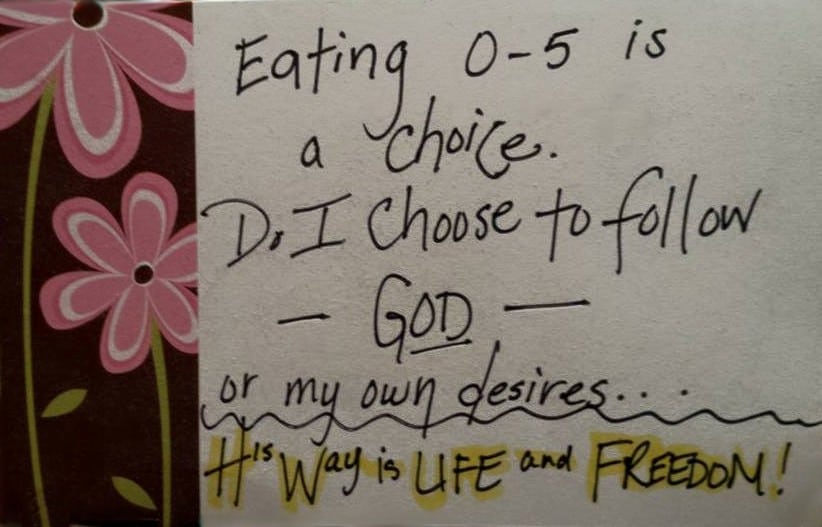 Eating 0-5 is
a choice.
Do I choose to follow
— GOD —
or my own desires...
His Way is LIFE and FREEDOM!